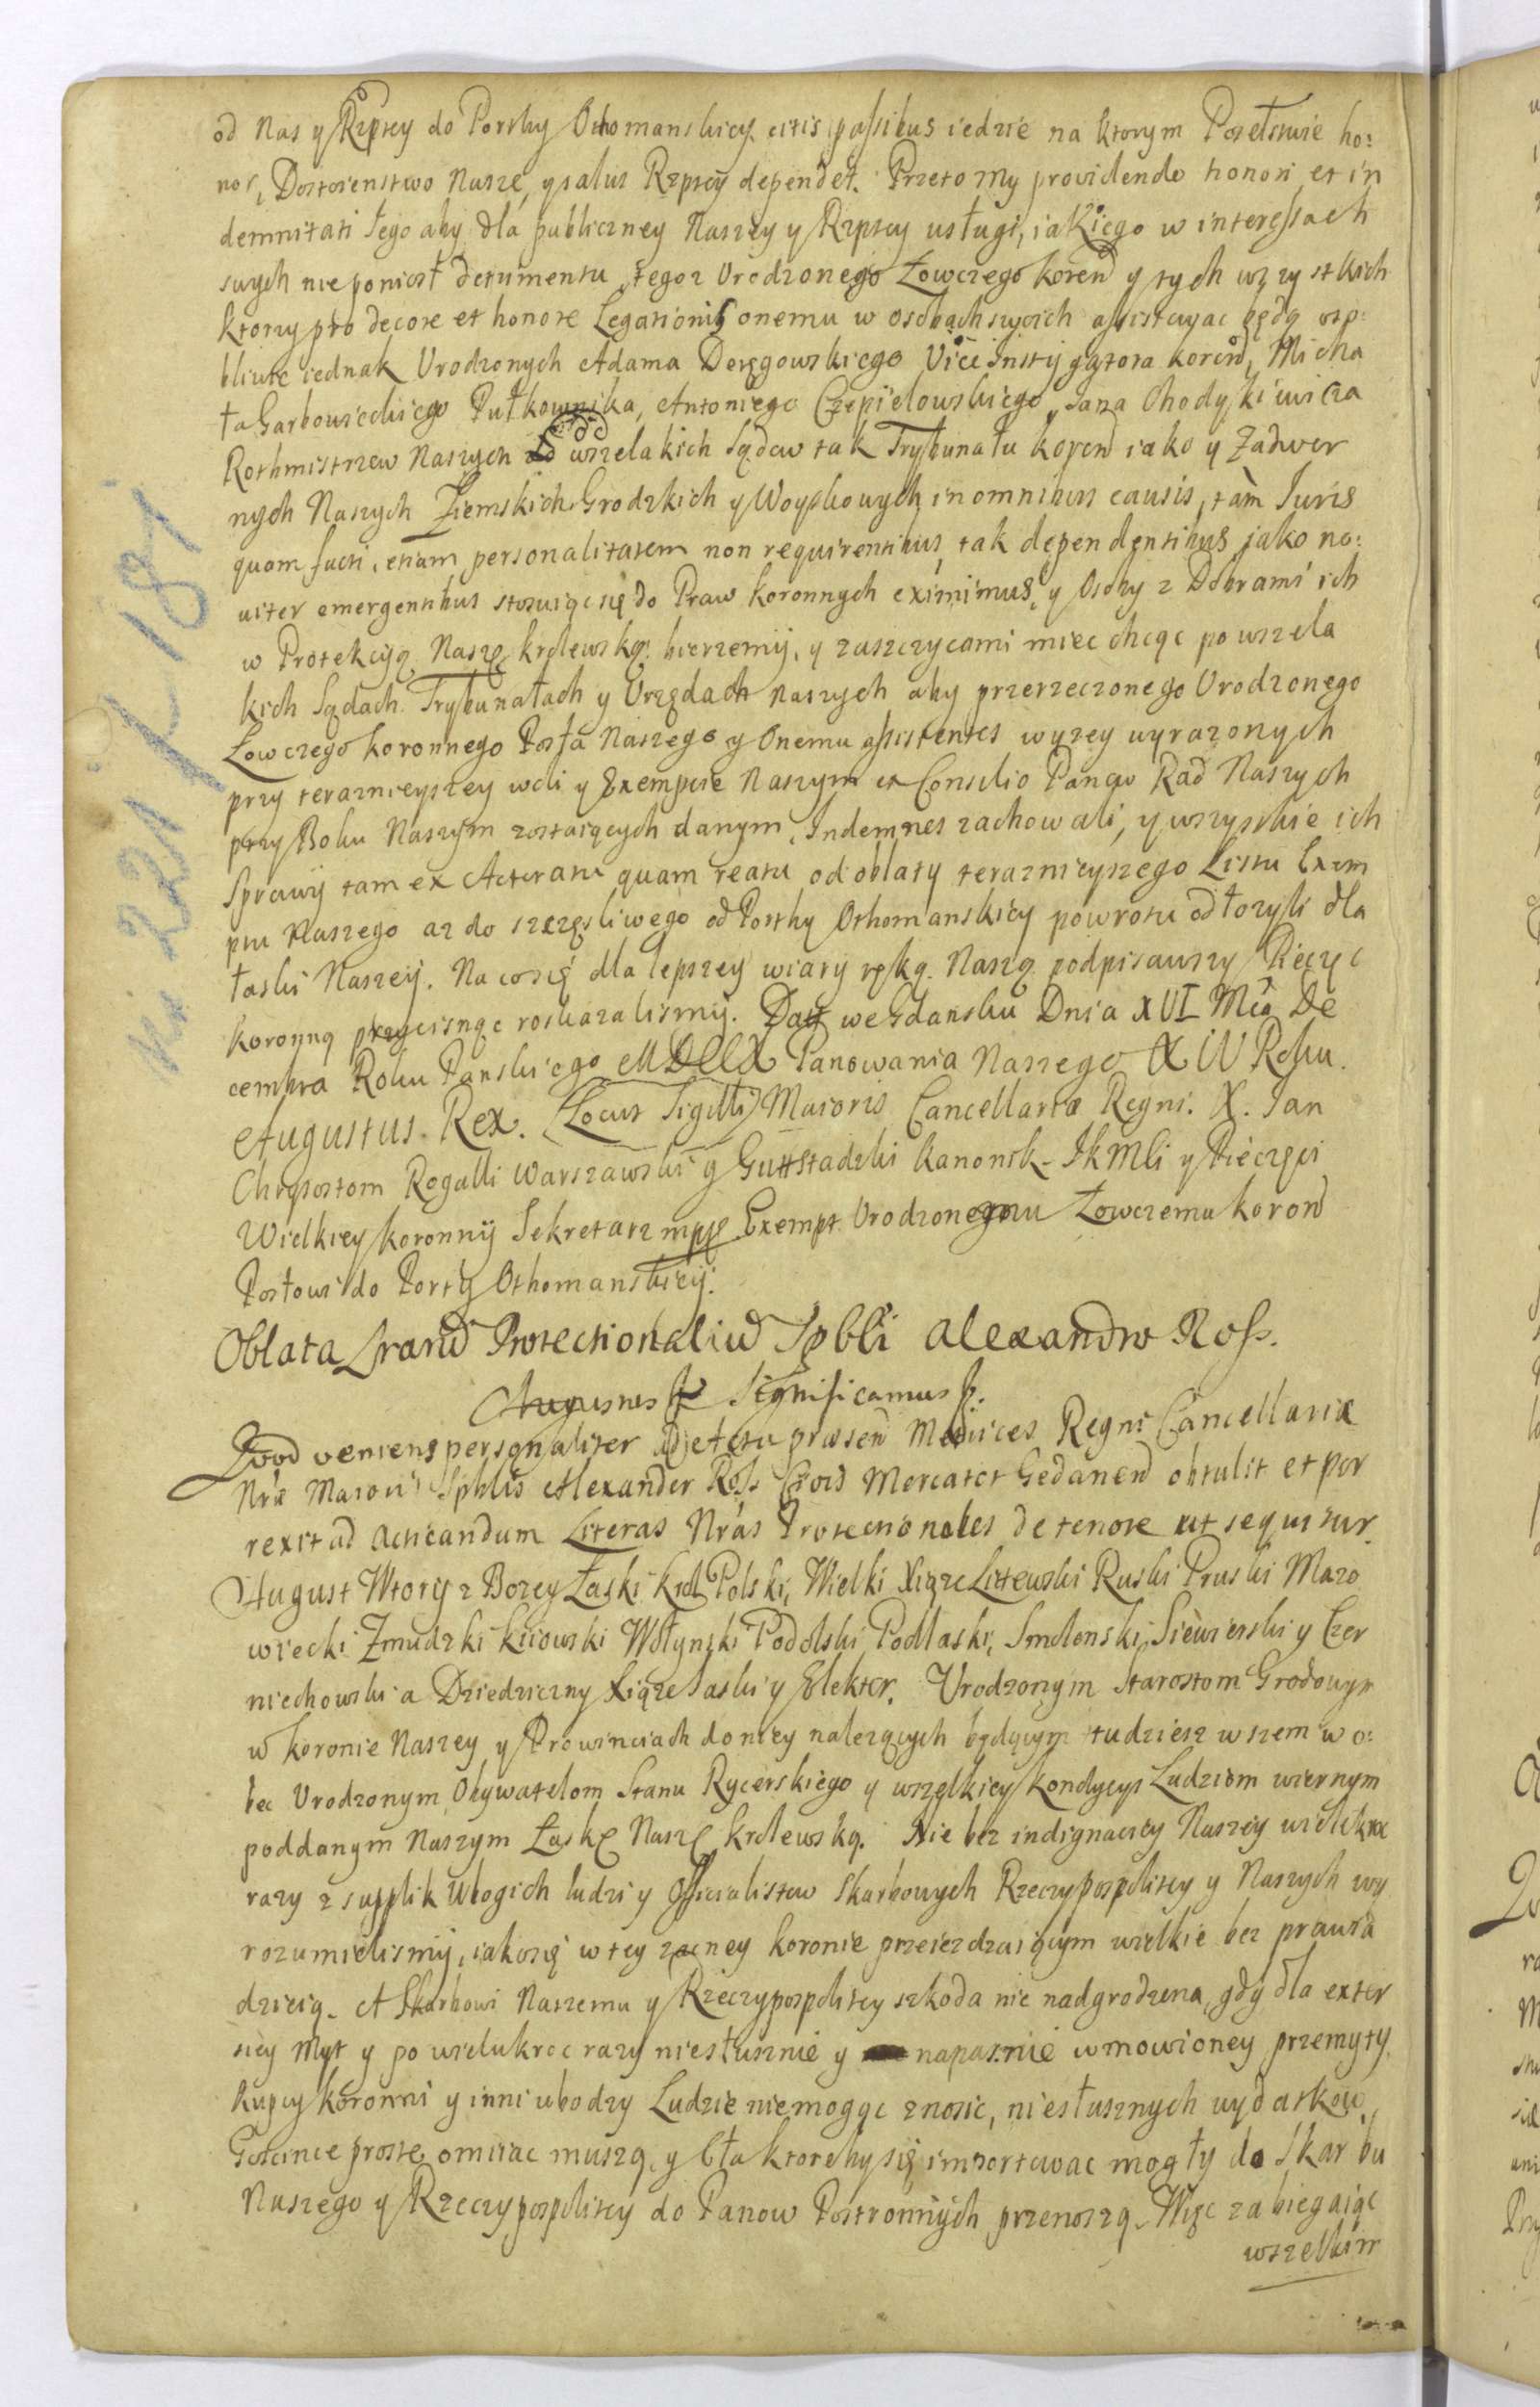 od Nas y Rzptey do Porthy Othomanskiey citis passibus iedzie na ktorym Poselstwie ho:
nor, Dostoienstwo Nasze, y salus Rzptey dependet. Przeto my providendo honori et in
demnitati Jego aby dla publiczney Naszey y Rzptey usługi, iakiego w interessach
swych nie poniosł detrimentu, tegoz Urodzonego Łowczego Koron y tych wszystkich
ktorzy pro decore et honore Legationis onemu w osobach swoich assistowac będą oso:
bliwie iednak Urodzonych Adama Deręgowskiego Vice Instygatora Koron, Micha
ła Garbowieckiego Pułkownika, Antoniego Czepielowskiego, Jana Chodykiewicza
Rothmistrzow Naszych od wszelakich Sądow tak Trybunału Koron iako y Zadwor
nych Naszych Ziemskich Grodzkich y Woyskowych in omnibus causis, tàm Juris
quam facti, etiam personalitatem non requirentibus, tak dependentibus jako no:
uiter emergentibus stosuiąc się do Praw Koronnych eximimus, y Osoby z Dobrami ich
w Protekcyą Naszę krolewską bierzemy, y zaszczycami miec chcąc po wszela
kich Sądach Trybunałach y Urzędach naszych aby przerzeczonego Urodzonego
Łowczego Koronnego Posła Naszego y Onemu assistentes wyzey wyrazonych
przy teraznieyszey woli y Exempcie Naszym ex Consilio Panow Rad Naszych
przy Boku Naszym zostaiących danym, Indemnes zachowali, y wszyskie ich
Sprawy tam ex Actoratu quam reatu od oblaty teraznieyszego Listu Exem
ptu Naszego az do szczęsliwego od Porthy Othomanskiey powrotu odłozyli dla
łaski Naszey. Na co się dla lepszey wiary ręką Naszą podpisawszy Pieczęc
koronną przycisnąc roskazalismy. Dat we Gdansku Dnia XVI Mca De
cembra Roku Panskiego MDCCX Panowania Naszego XIV Roku.
Augustus Rex. (Locus Sigilli) Maioris Cancellariæ Regni. X. Jan
Chrysostom Rogalli Warszawski y Guttstadzki Kanonik JKMci y Pieczęci
Wielkiey Koronny Sekretarz mpp. Exempt Urodzonemu Łowczemu Koron
Posłowi do Porty Othomanskiey.
Oblata Lrarum Protectionalium Spbli Alexandro Ross.
Augustus etc. Significamus etc.
Quod veniens personaliter ad Acta præsen Metrices Regni Cancellariæ
Nræ Maioris Spblis Alexander Ross Civis Mercator Gedanen obtulit et por
rexit ad acticandum Literas Nras Protectionales de tenore ut sequitur.
August Wtory z Bozey Łaski Krol Polski, Wielki Xiąze Litewski Ruski Pruski Mazo
wiecki Zmudzki Kiiowski Wołynski Podolski Podlaski, Smolenski, Siewierski y Czer
niechowski a Dziedziczny Xiąze Saski y Elektor. Urodzonym Starostom Grodowym
w Koronie Naszey y Prowinciach do niey nalezących będącym tudziesz wszem w o:
bec Urodzonym Obywatelom Stanu Rycerskiego y wszelkiey Kondycyi Ludziom wiernym
poddanym Naszym Łaskę Naszę krolewską. Nie bez indignacyey Naszey wielekroc
razy z supplik Ubogich ludzi y Officialistow Skarbowych Rzeczypospolitey y Naszych wy
rozumielismy, iako się w tey zacney Koronie przeiezdzaiącym wielkie bez prawia
dzieią. A Skarbowi Naszemu y Rzeczypospolitey szkoda nie nadgrodzona, gdy dla extor
siey Myt y po wielukroc razy niesłusznie y napasnie wmowioney przemyty
Kupcy Koronni y inni ubodzy Ludzie niemogąc znosic, niesłusznych wydatkow
Goscince proste omiiac muszą, y Cła ktoreby się importowac mogły do Skarbu
Naszego y Rzeczypospolitey do Panow Postronnych przenoszą. Więc zabiegaiąc
wszelkim